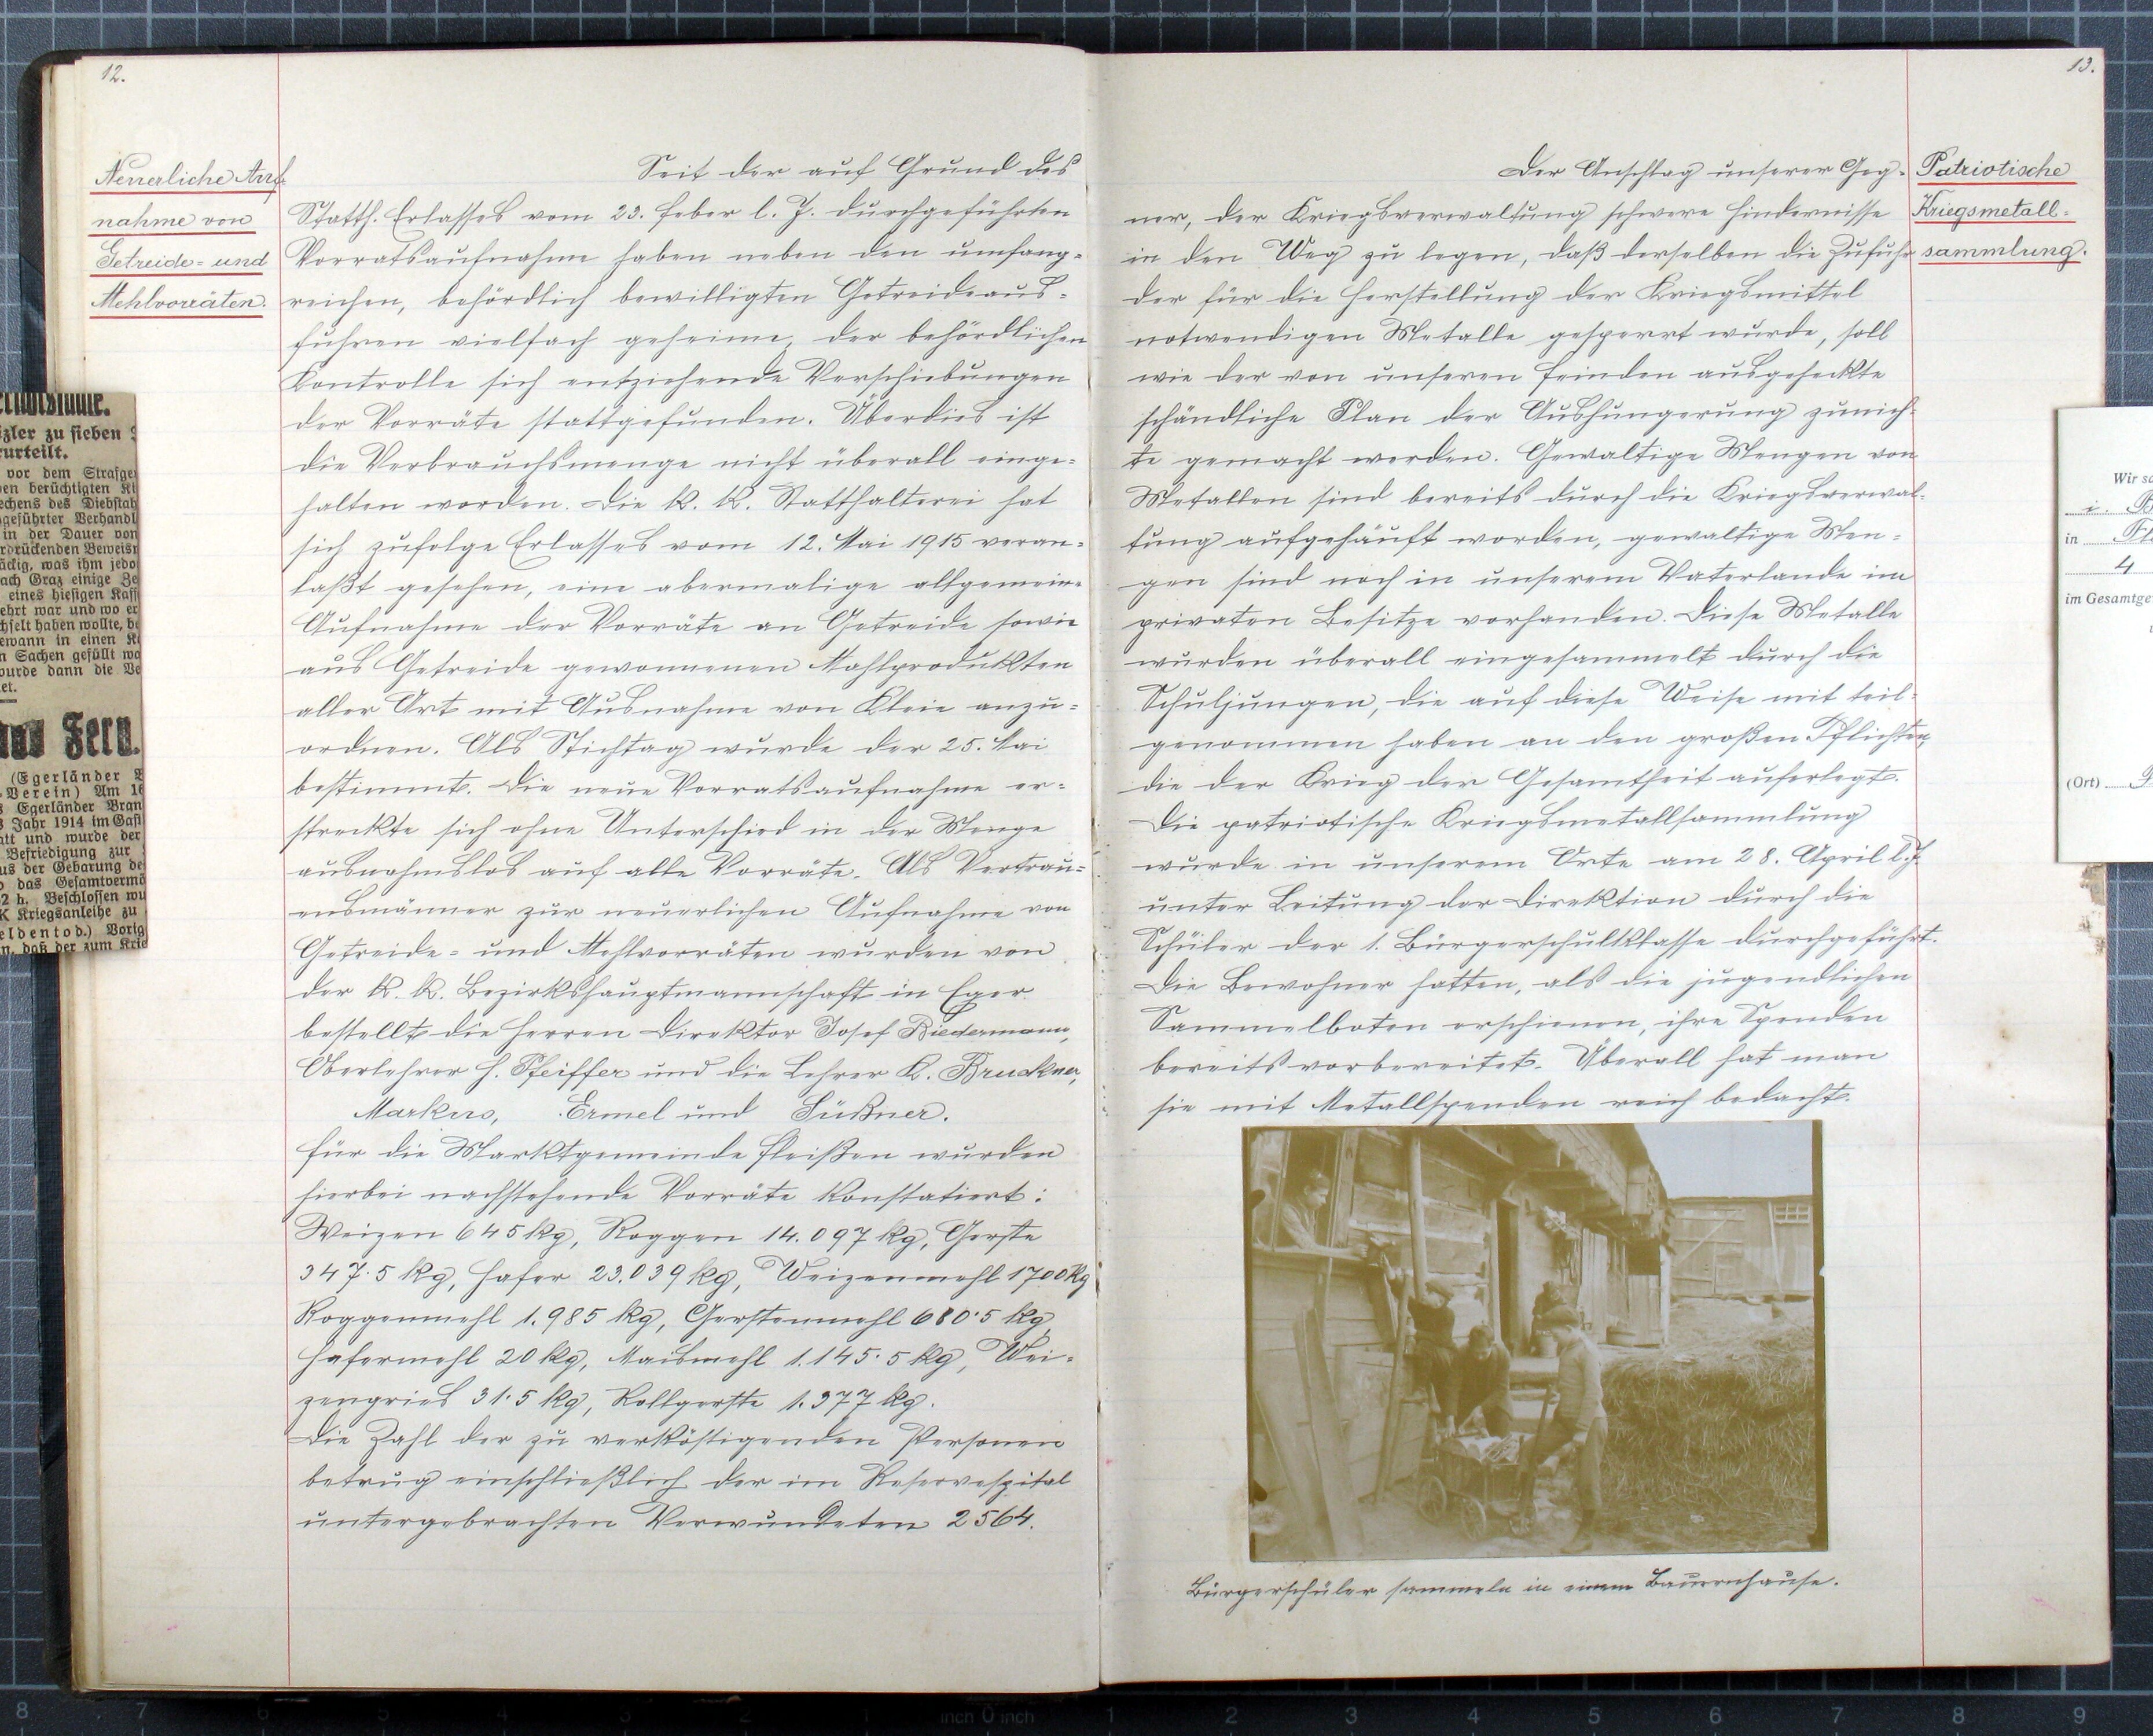 12.
Neuerliche Auf
nahme von
Getreide- und
Mehlvorräten.
Seit der auf Grund des
Statth. Erlasses vom 23. Feber l. J. durchgeführten
Vorratsaufnahme haben neben den umfang-
reichen, behördlich bewilligten Getreideaus-
fuhren vielfach geheime, der behördlichen
Kontrolle sich entziehende Verschiebungen
der Vorräte stattgefunden. Überdies ist
die Verbrauchsmenge nicht überall einge-
halten worden. Die k. k. Statthalterei hat
sich zufolge Erlasses vom 12. Mai 1915 veran-
laßt gesehen, eine abermalige allgemeine
Aufnahme der Vorräte an Getreide sowie
aus Getreide gewonnenen Mahlprodukten
aller Art mit Ausnahme von Kleie anzu-
ordnen. Als Stichtag wurde der 25. Mai
bestimmt. Die neue Vorratsaufnahme er-
streckte sich ohne Unterschied in der Menge
ausnahmslos auf alle Vorräte. Als Vertrau-
ensmänner zur neuerlichen Aufnahme von
Getreide- und Mehlvorräten wurden von
der k. k. Bezirkshauptmannschaft in Eger
bestellt die Herren Direktor Josef Biedermann,
Oberlehrer H. Pfeiffer und die Lehrer K. Bruckner,
Markus, Ermel und Süßner.
Für die Marktgemeinde Fleißen wurden
hierbei nachstehende Vorräte konstatiert:
Weizen 645 kg, Roggen 14.097 kg, Gerste
347·5 kg, Hafer 23.039 kg, Weizenmehl 1700 kg
Roggenmehl 1.985 kg, Gerstenmehl 680·5 kg,
Hafermehl 20 kg, Maismehl 1.145·5 kg, Wei-
zengries 31·5 kg, Rollgerste 1.377 kg.
Die Zahl der zu verköstigenden Personen
betrug einschließlich der im Reservespital
untergebrachten Verwundeten 2564.
13.
Patriotische
Kriegsmetall-
sammlung.
Der Anschlag unserer Geg-
ner, der Kriegsverwaltung schwere Hindernisse
in den Weg zu legen, daß derselben die Zufuhr
der für die Herstellung der Kriegsmittel
notwendigen Metalle gesperrt wurde, soll
wie der von unseren Feinden ausgeheckte
schändliche Plan der Aushungerung zunich-
te gemacht werden. Gewaltige Mengen von
Metallen sind bereits durch die Kriegsverwal-
tung aufgehäuft worden, gewaltige Men-
gen sind noch in unserem Vaterlande im
privaten Besitze vorhanden. Diese Metalle
wurden überall eingesammelt durch die
Schuljungen, die auf diese Weise mit teil-
genommen haben an den großen Pflichten,
die der Krieg der Gesamtheit auferlegt.
Die patriotische Kriegsmetallsammlung
wurde in unserem Orte am 28. April l. J.
unter Leitung der Direktion durch die
Schüler der 1. Bürgerschulklasse durchgeführt.
Die Bewohner hatten, als die jugendlichen
Sammelboten erschienen, ihre Spenden
bereits vorbereitet. Überall hat man
sie mit Metallspenden reich bedacht.
Bürgerschüler sammeln in einem Bauernhause.
zler zu sieben
urteilt.
vor dem Strafge
en berüchtigten
echens des Diebstah
geführter Verhandl
in der Dauer von
rdrückenden Beweis
äckig, was ihm jedo
ach Graz einige Ze
eines hiesigen Kaff
ehrt war und wo er
hselt haben wollte, be
ewann in einen
n Sachen gefüllt wo
urde dann die Be
et.
Fern.
(Egerländer
Verein) Am 16
Egerländer Bran
Jahr 1914 im Gast
att und wurde der
Befriedigung zur
us der Gebarung de
das Gesamtvermö
2 h. Beschlossen wu
K Kriegsanleihe zu
eldentod.) Vorig
n, daß der zum Krie
Wir
i.
in
4
im Gesamtge
(Ort)
8 7 6 5 4 3 2 1 inch 0 inch 1 2 3 4 5 6 7 8 9